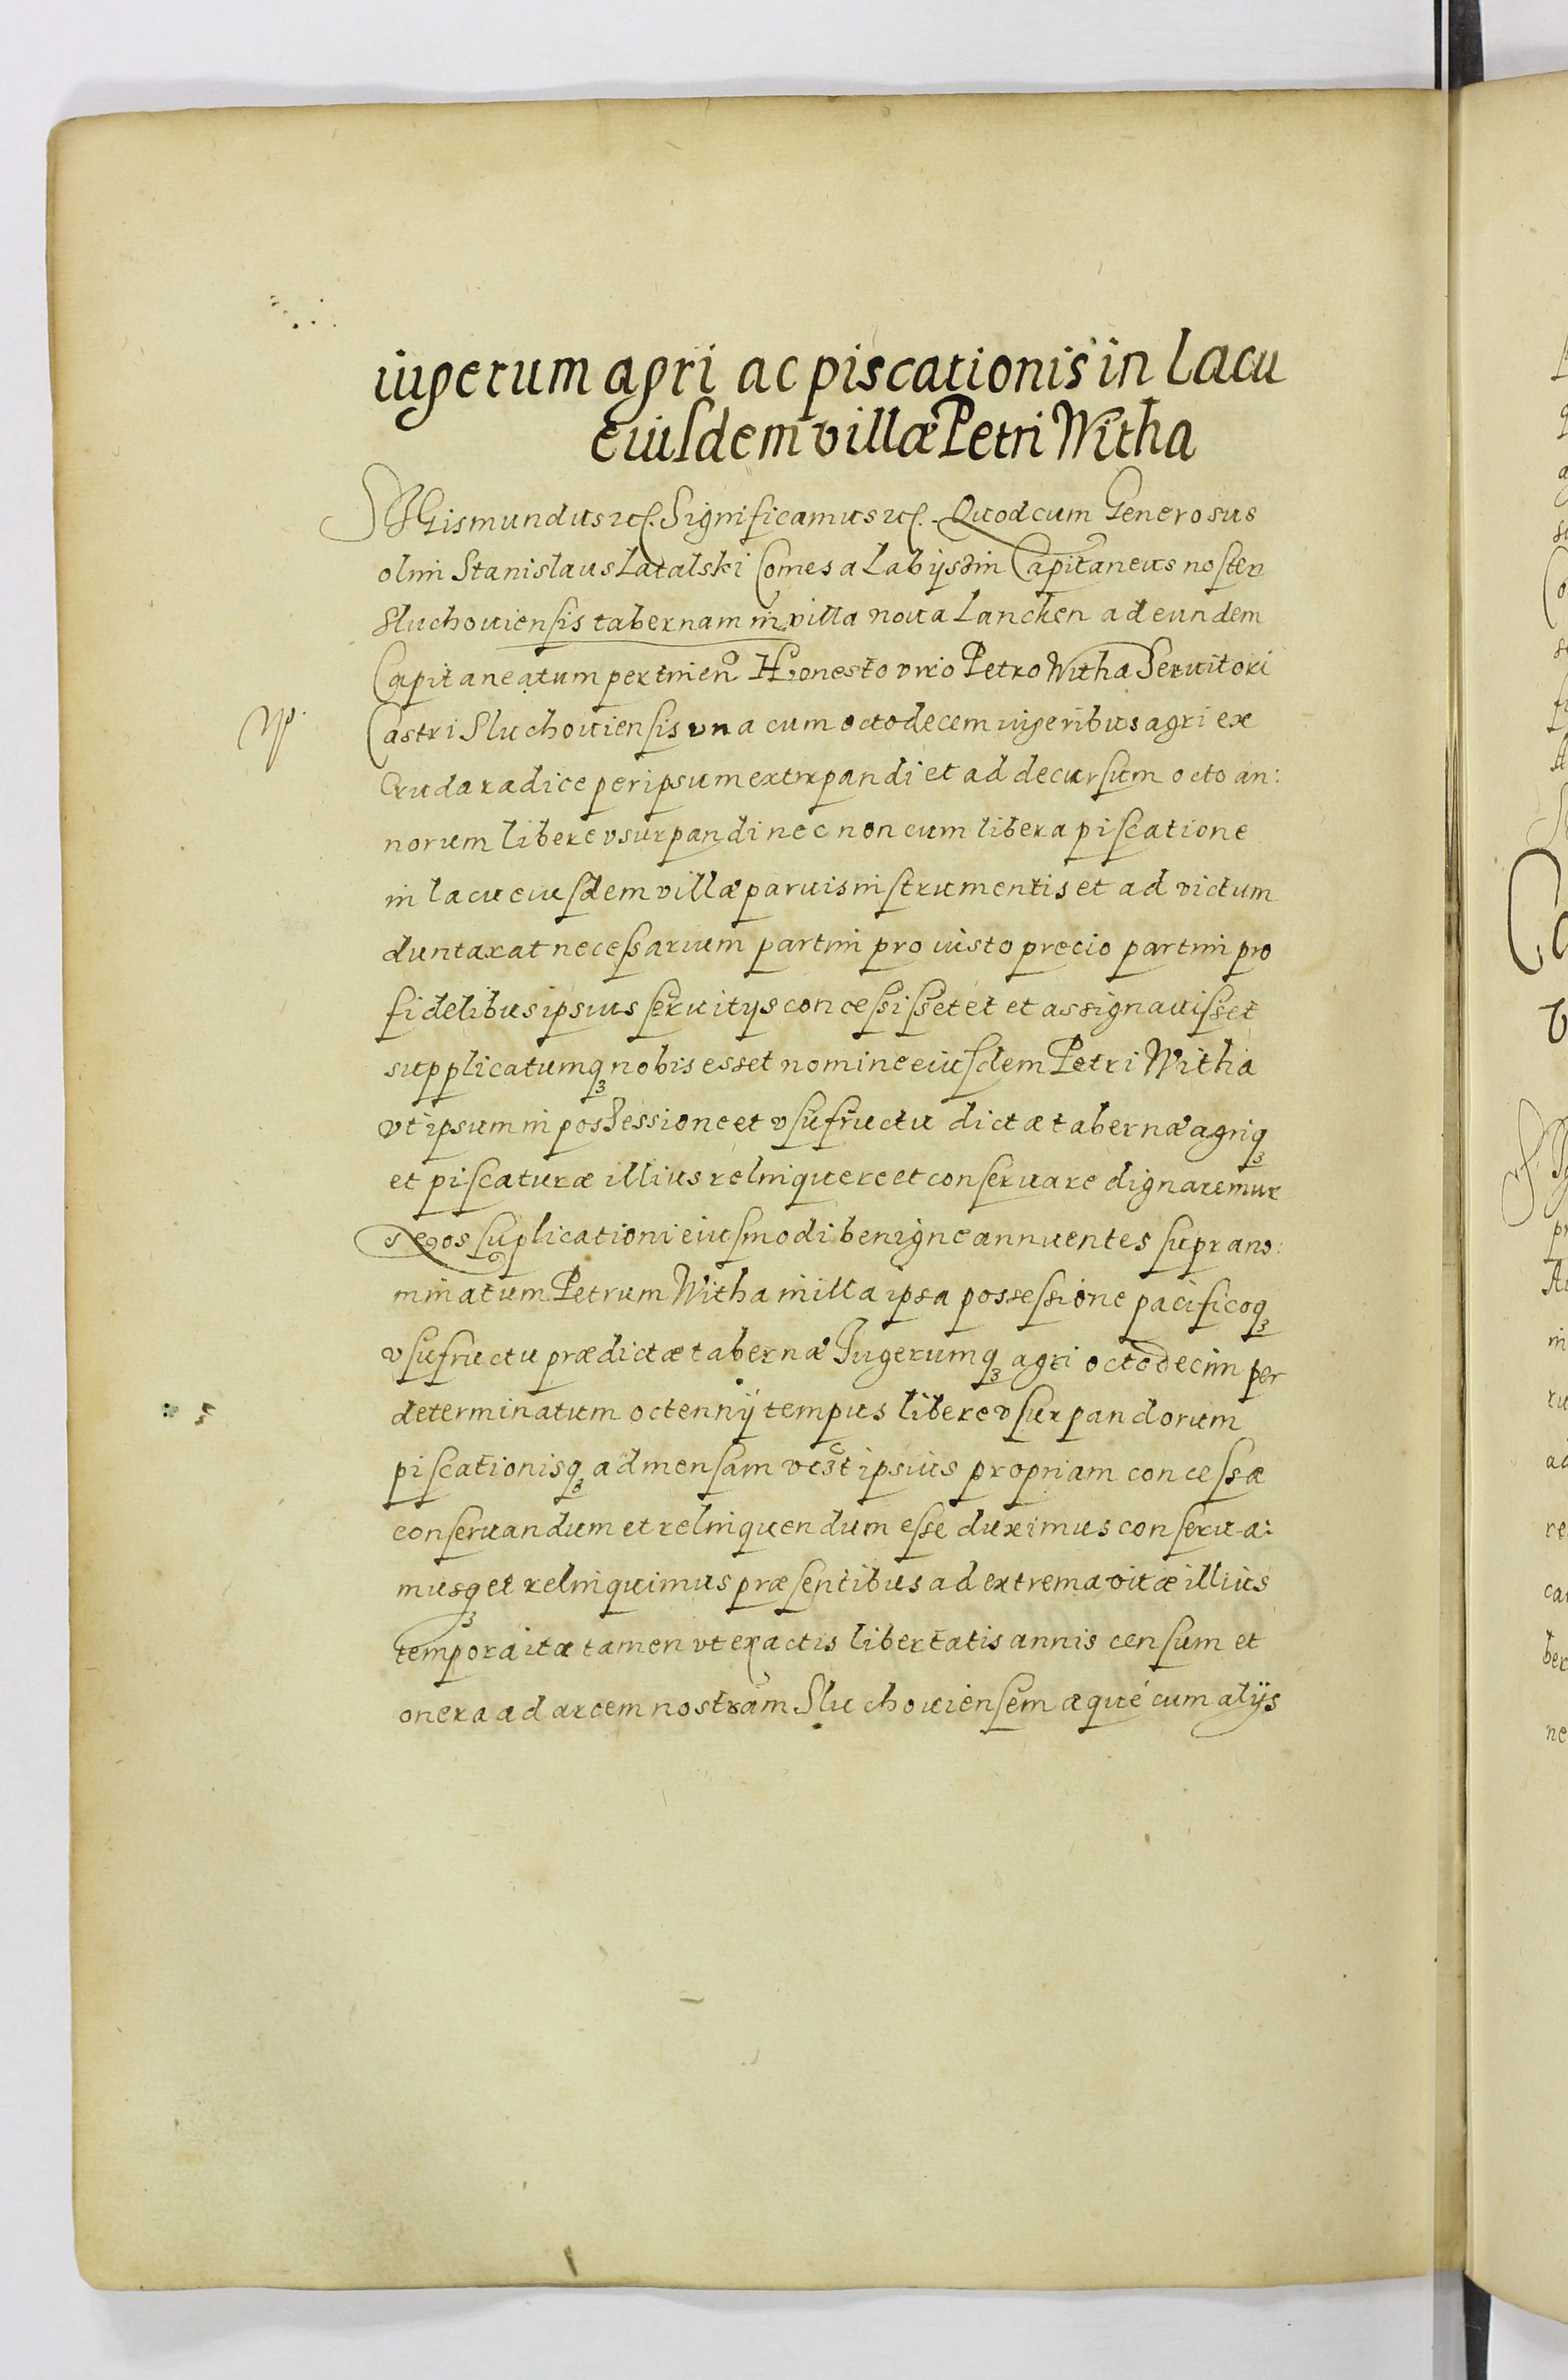 iugerum agri ac piscationis in Lacu
eiusdem villæ Petri Witha
SIGismundus etc. Significamus etc. Quod cum Generosus
olim Stanislaus Latalski Comes a Labyschin Capitaneus noster
Sluchouiensis tabernam in villa noua Lancken ad eundem
Capitaneatum pertinen Honesto viro Petro Witha Seruitori
Castri Sluchouiensis vna cum octodecem iugeribus agri ex
Cruda radice per ipsum extirpandi et ad decursum octo an:
norum libere vsurpandi nec non cum libera piscatione
in lacu eiusdem villæ paruis instrumentis et ad victum
duntaxat necessarium partim pro iusto precio partim pro
fidelibus ipsius seruitys concessisset et et assignauisset
supplicatumqȝ nobis esset nomine eiusdem Petri Witha
vt ipsum in possessione et vsufructu dictæ tabernæ agriqȝ
et piscaturæ illius relinquere et conseruare dignaremur
Nos suplicationi eiusmodi benigne annuentes suprano:
minatum Petrum Witha in illa ipsa possessione pacificoqȝ
vsufructu prædictæ tabernæ Iugerumqȝ agri octodecim per
determinatum octennÿ tempus libere vsurpandorum
piscationisqȝ ad mensam ipsius propriam concessæ
conseruandum et relinquendum esse duximus conserua:
musqȝ et relinquimus præsentibus ad extrema vitæ illius
tempora ita tamen vt exactis libertatis annis censum et
onera ad arcem nostram Sluchouiensem æqué cum alÿs